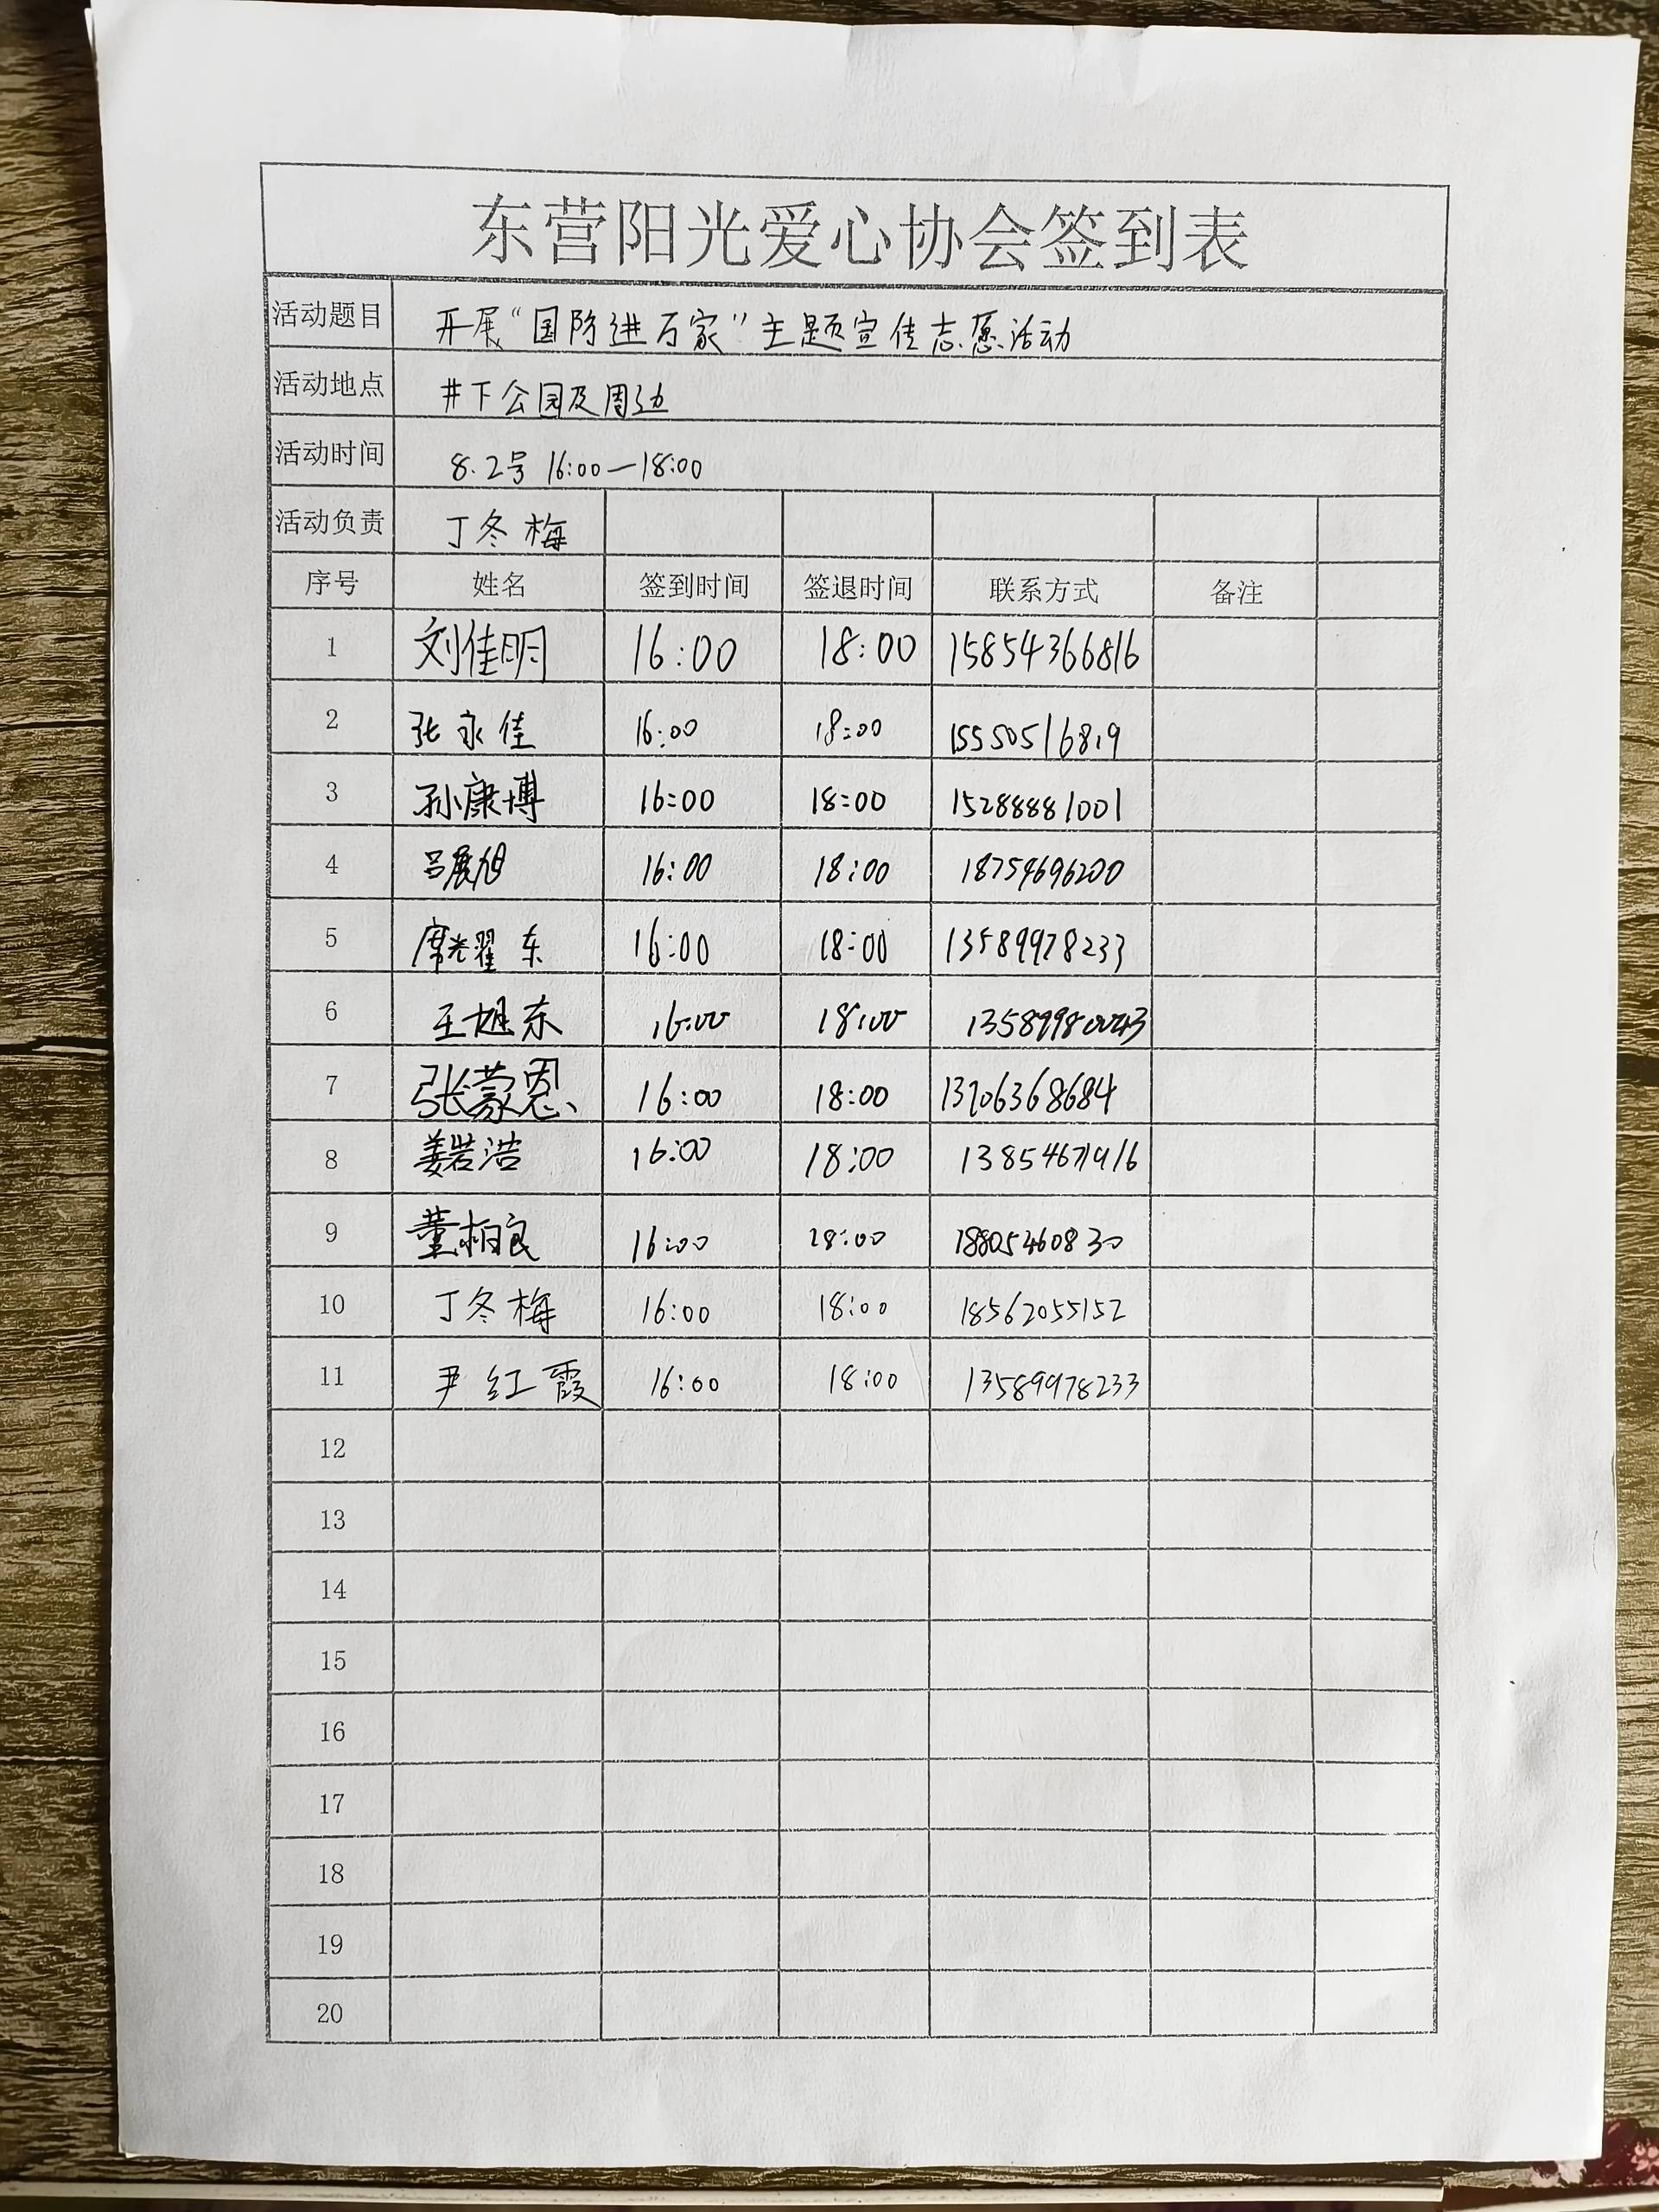 东营阳光爱心协会签到表
活动题目 开展“国防进万家”主题宣传志愿活动
活动地点 井下公园及周边
活动时间 8.2号 16:00—18:00
活动负责 丁冬梅
序号 姓名 签到时间 签退时间 联系方式 备注
1 刘佳明 16:00 18:00 15854366816
2 张永佳 16:00 18:00 15550516819
3 孙康博 16:00 18:00 15288881001
4 吕展旭 16:00 18:00 18754696200
5 席光耀东 16:00 18:00 13589978233
6 王旭东 16:00 18:00
7 张蒙恩 16:00 18:00 13706368684
8 姜若浩 16:00 18:00 13854671916
9 董柏良 16:00 18:00 18805460830
10 丁冬梅 16:00 18:00 18562055152
11 尹红霞 16:00 18:00 13589978233
12
13
14
15
16
17
18
19
20